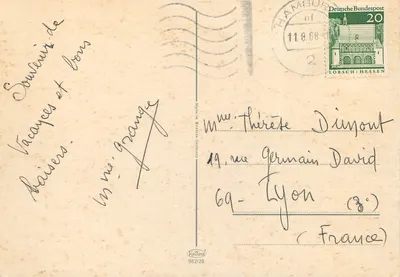 Souvenir de
Vacances et bons
baisers.
mme. Grange
HAMBURG
11.8.68
2
Deutsche Bundespost
20
LORSCH - HESSEN
mme. Thérèse Dumont
19, rue Germain David
69 - Lyon (3e)
(France)